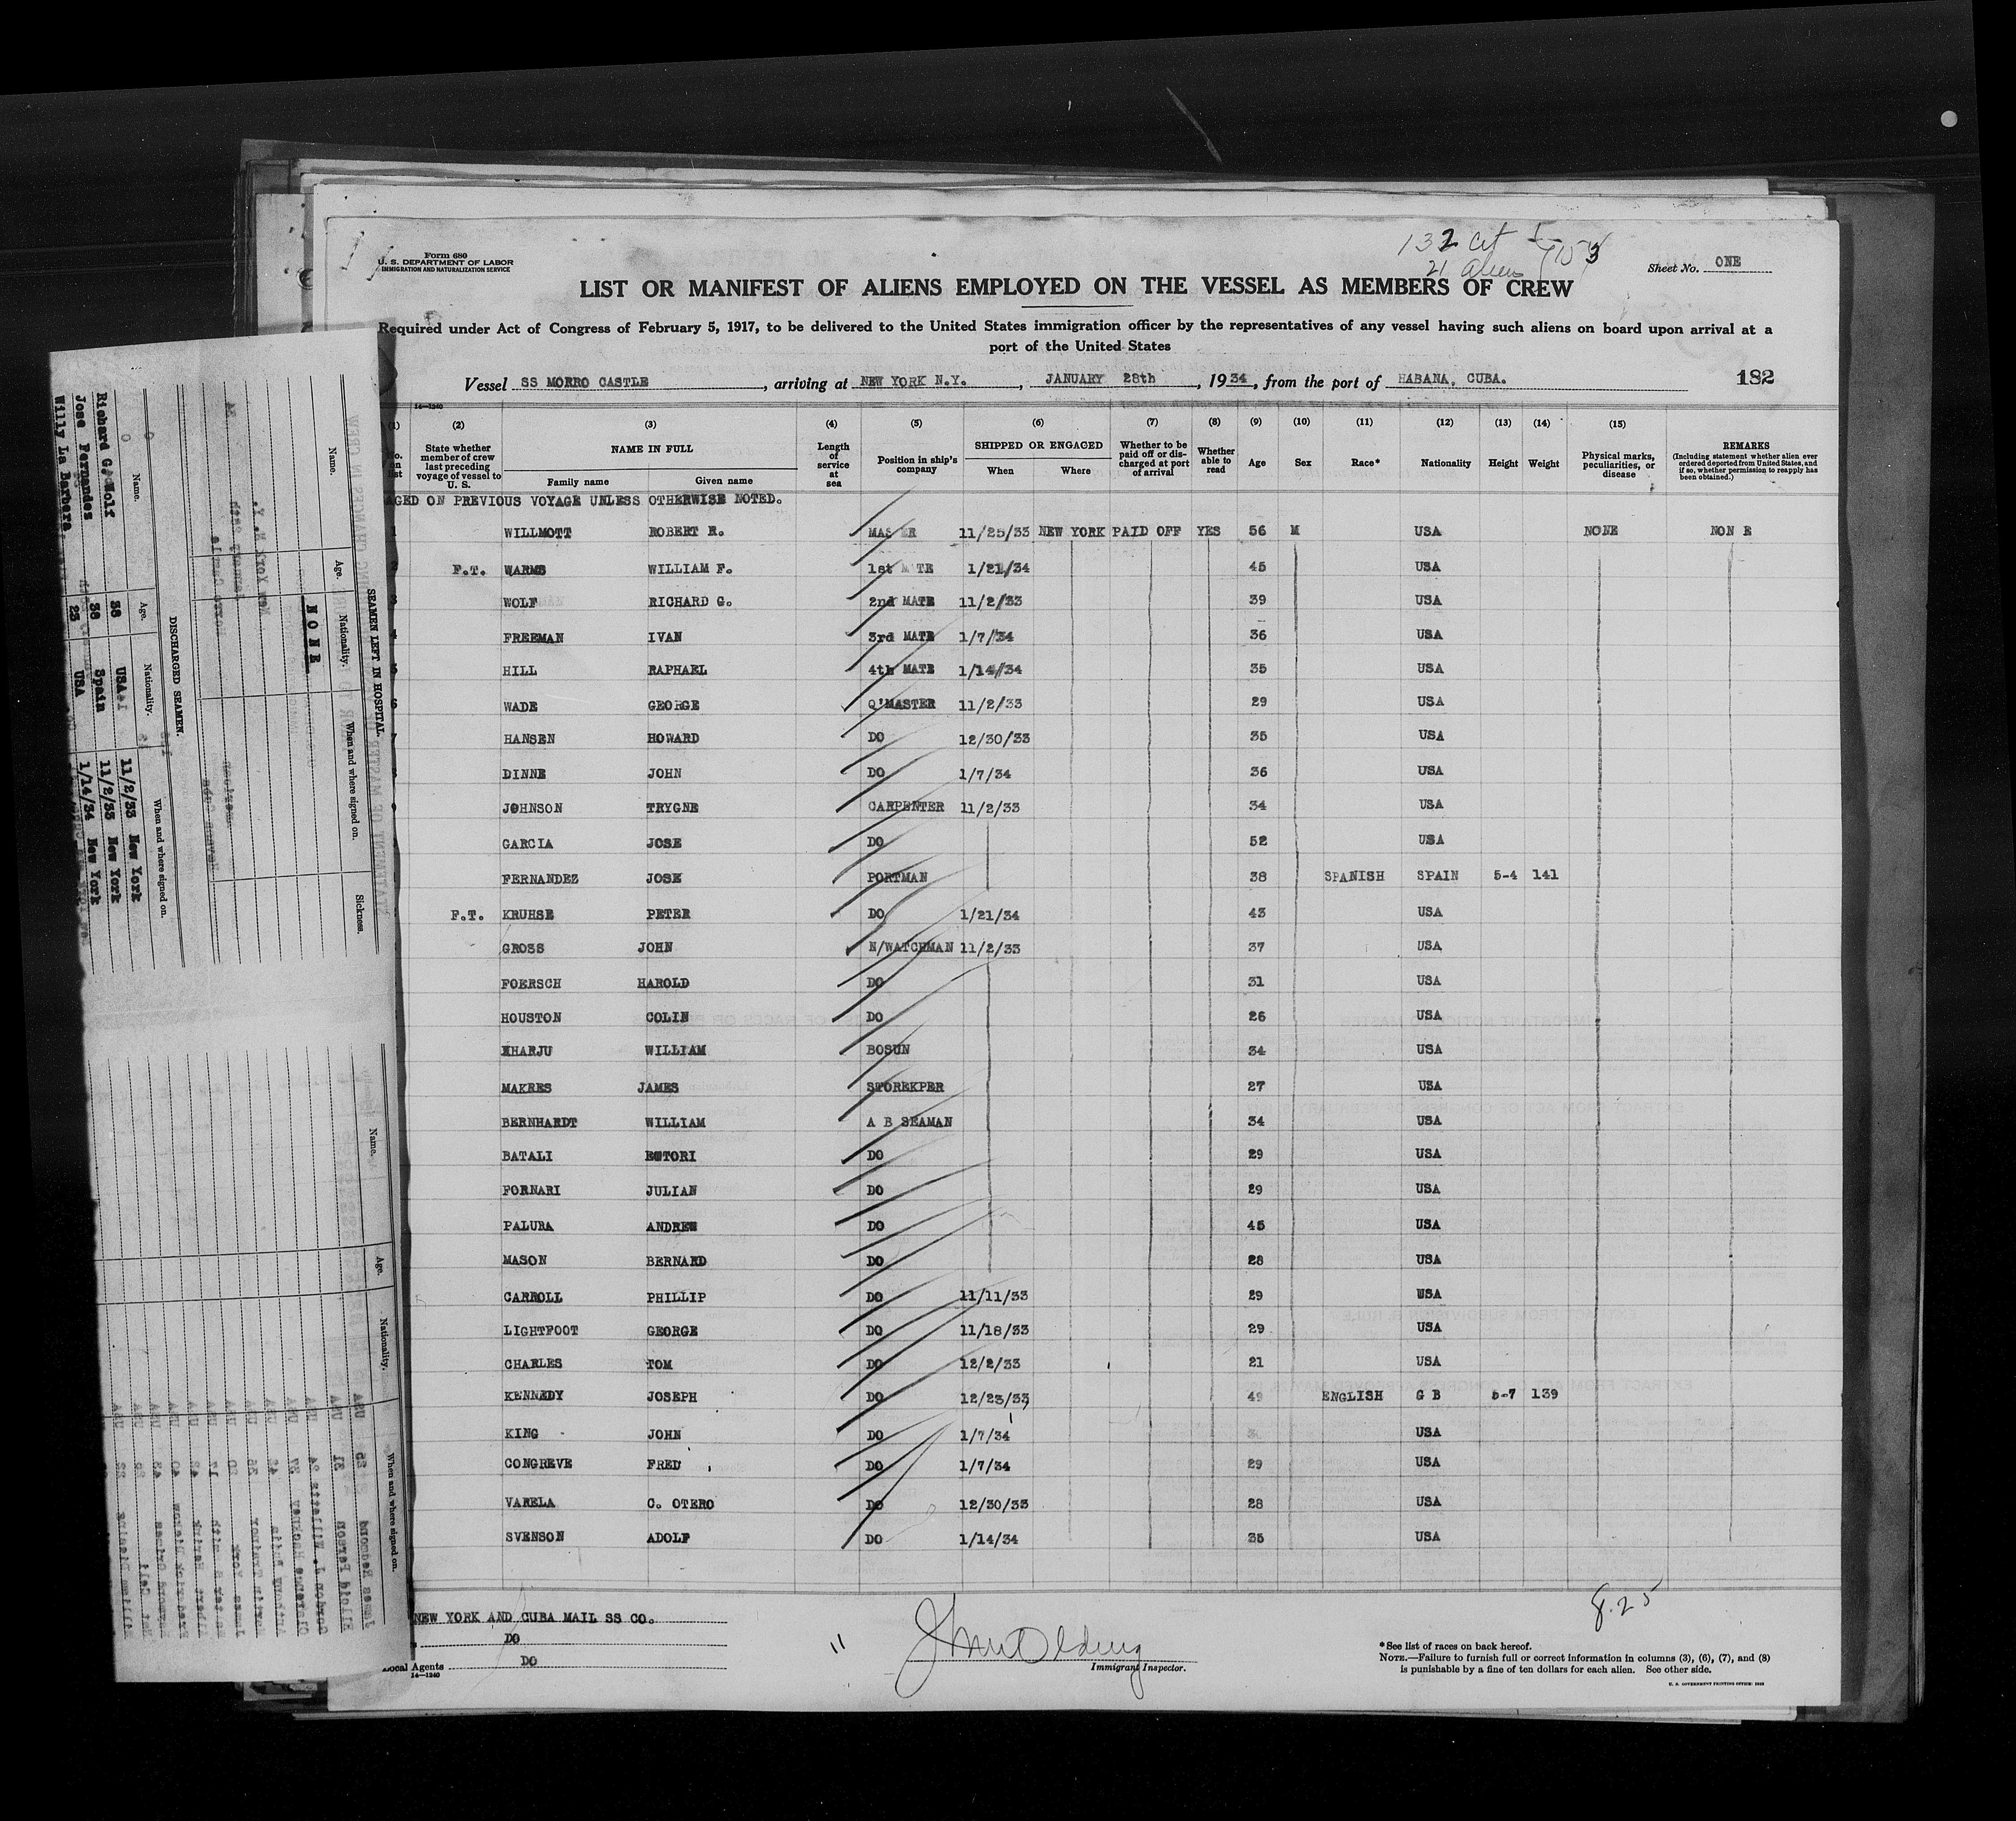 132 cit
21 aliens
153
Form 680
U. S. DEPARTMENT OF LABOR
IMMIGRATION AND NATURALIZATION SERVICE
Sheet No. ONE
LIST OR MANIFEST OF ALIENS EMPLOYED ON THE VESSEL AS MEMBERS OF CREW
Required under Act of Congress of February 5, 1917, to be delivered to the United States immigration officer by the representatives of any vessel having such aliens on board upon arrival at a
port of the United States
Vessel SS MORRO CASTLE, arriving at NEW YORK N.Y., JANUARY 28th, 1934, from the port of HABANA, CUBA.
182
14—1240
(1) (2) (3) (4) (5) (6) (7) (8) (9) (10) (11) (12) (13) (14) (15)
No. on list
State whether member of crew last preceding voyage of vessel to U. S.
NAME IN FULL
Family name Given name
Length of service at sea
Position in ship's company
SHIPPED OR ENGAGED
When Where
Whether to be paid off or discharged at port of arrival
Whether able to read
Age Sex Race* Nationality Height Weight
Physical marks, peculiarities, or disease
REMARKS
(Including statement whether alien ever ordered deported from United States, and if so, whether permission to reapply has been obtained.)
AGED ON PREVIOUS VOYAGE UNLESS OTHERWISE NOTED.
1 WILLMOTT ROBERT R. MAS ER 11/25/33 NEW YORK PAID OFF YES 56 M USA NONE NON E
2 F.T. WARMS WILLIAM F. 1st M TE 1/21/34 45 USA
3 WOLF RICHARD G. 2nd MATE 11/2/33 39 USA
4 FREEMAN IVAN 3rd MATE 1/7/34 36 USA
5 HILL RAPHAEL 4th MATE 1/14/34 35 USA
6 WADE GEORGE Q'MASTER 11/2/33 29 USA
7 HANSEN HOWARD DO 12/30/33 35 USA
DINNE JOHN DO 1/7/34 36 USA
JOHNSON TRYGNE CARPENTER 11/2/33 34 USA
GARCIA JOSE DO 52 USA
FERNANDEZ JOSE PORTMAN 38 SPANISH SPAIN 5-4 141
F.T. KRUHSE PETER DO 1/21/34 43 USA
GROSS JOHN N/WATCHMAN 11/2/33 37 USA
FOERSCH HAROLD DO 31 USA
HOUSTON COLIN DO 26 USA
XHARJU WILLIAM BOSUN 34 USA
MAKRES JAMES STOREKPER 27 USA
BERNHARDT WILLIAM A B SEAMAN 34 USA
BATALI DO 29 USA
FORNARI JULIAN DO 29 USA
PALUBA ANDREW DO 45 USA
MASON BERNARD DO 28 USA
CARROLL PHILLIP DO 11/11/33 29 USA
LIGHTFOOT GEORGE DO 11/18/33 29 USA
CHARLES TOM DO 12/2/33 21 USA
KENNEDY JOSEPH DO 12/23/33 49 ENGLISH G B 5-7 139
KING JOHN DO 1/7/34 USA
CONGREVE FRED DO 1/7/34 29 USA
VARELA C. OTERO DO 12/30/33 28 USA
SVENSON ADOLF DO 1/14/34 35 USA
8.25
NEW YORK AND CUBA MAIL SS CO.
DO
Local Agents DO
14—1240
Immigrant Inspector.
*See list of races on back hereof.
NOTE.—Failure to furnish full or correct information in columns (3), (6), (7), and (8)
is punishable by a fine of ten dollars for each alien. See other side.
U. S. GOVERNMENT PRINTING OFFICE: 1932
SEAMEN LEFT IN HOSPITAL.
Name. Age. Nationality. When and where signed on. Sickness.
NONE
DISCHARGED SEAMEN.
Name. Age. Nationality. When and where signed on.
Richard G. Wolf 38 USA 11/2/33 New York
Jose Fernandes 38 Spain 11/2/33 New York
Willy La Barbera, 23 USA 1/14/34 New York
Name. Age. Nationality. When and where signed on.